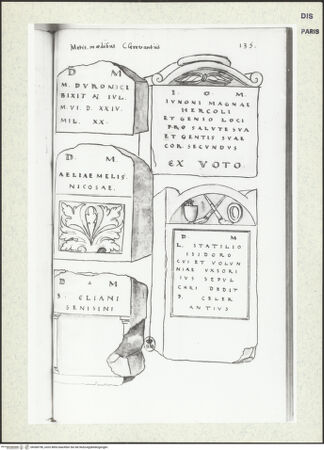 DIS
PARIS
135.
D M
M. DVRONICI
BIXIT AN IVL.
M. VI. D. XXIV.
MIL. XX.
I. O. M.
IVNONI MAGNAE
HERCOLI
ET GENIO LOCI
PRO SALVTE SVA
ET GENTIS SVAE
COR. SECVNDVS
EX VOTO
D. M.
AELIAE MELIS.
NICOSAE.
D M
L. STATILIO
ISIDORO
CVI ET VOLVM
NIAE VXSORI
IVS SEPVL
CHRI DEDIT
P. CELER
ANTIVS
D M
ELIANI
SENISINI